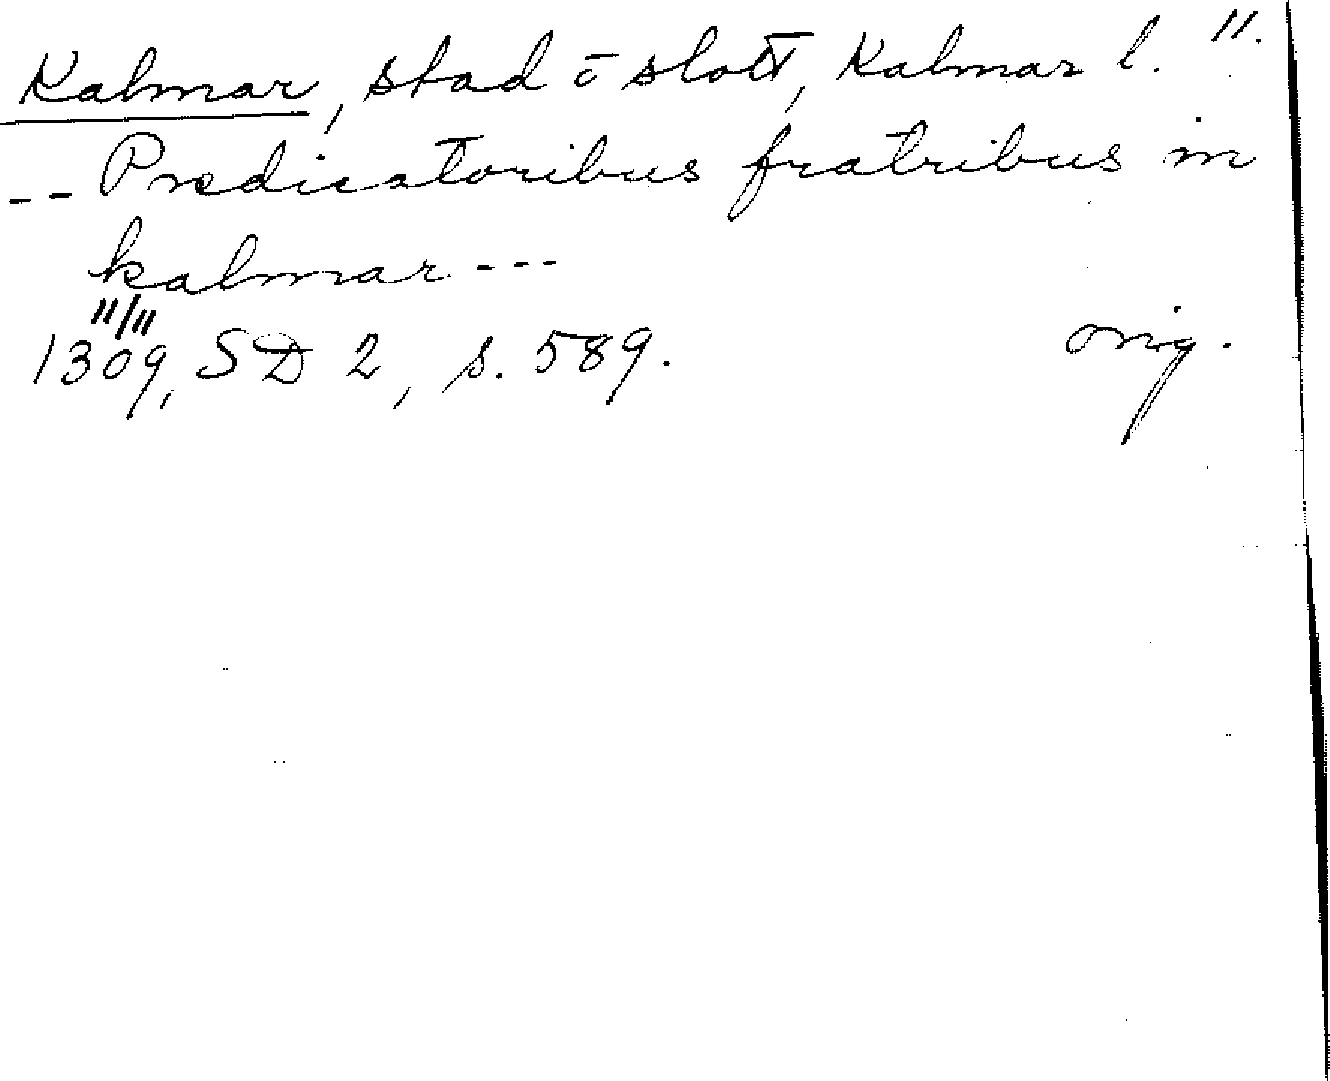 Kalmar, stad ō slott, Kalmar l. 11.
-- Predicatoribus fratribus in
kalmar ---
11/11
1309, SD 2, s. 589. orig.